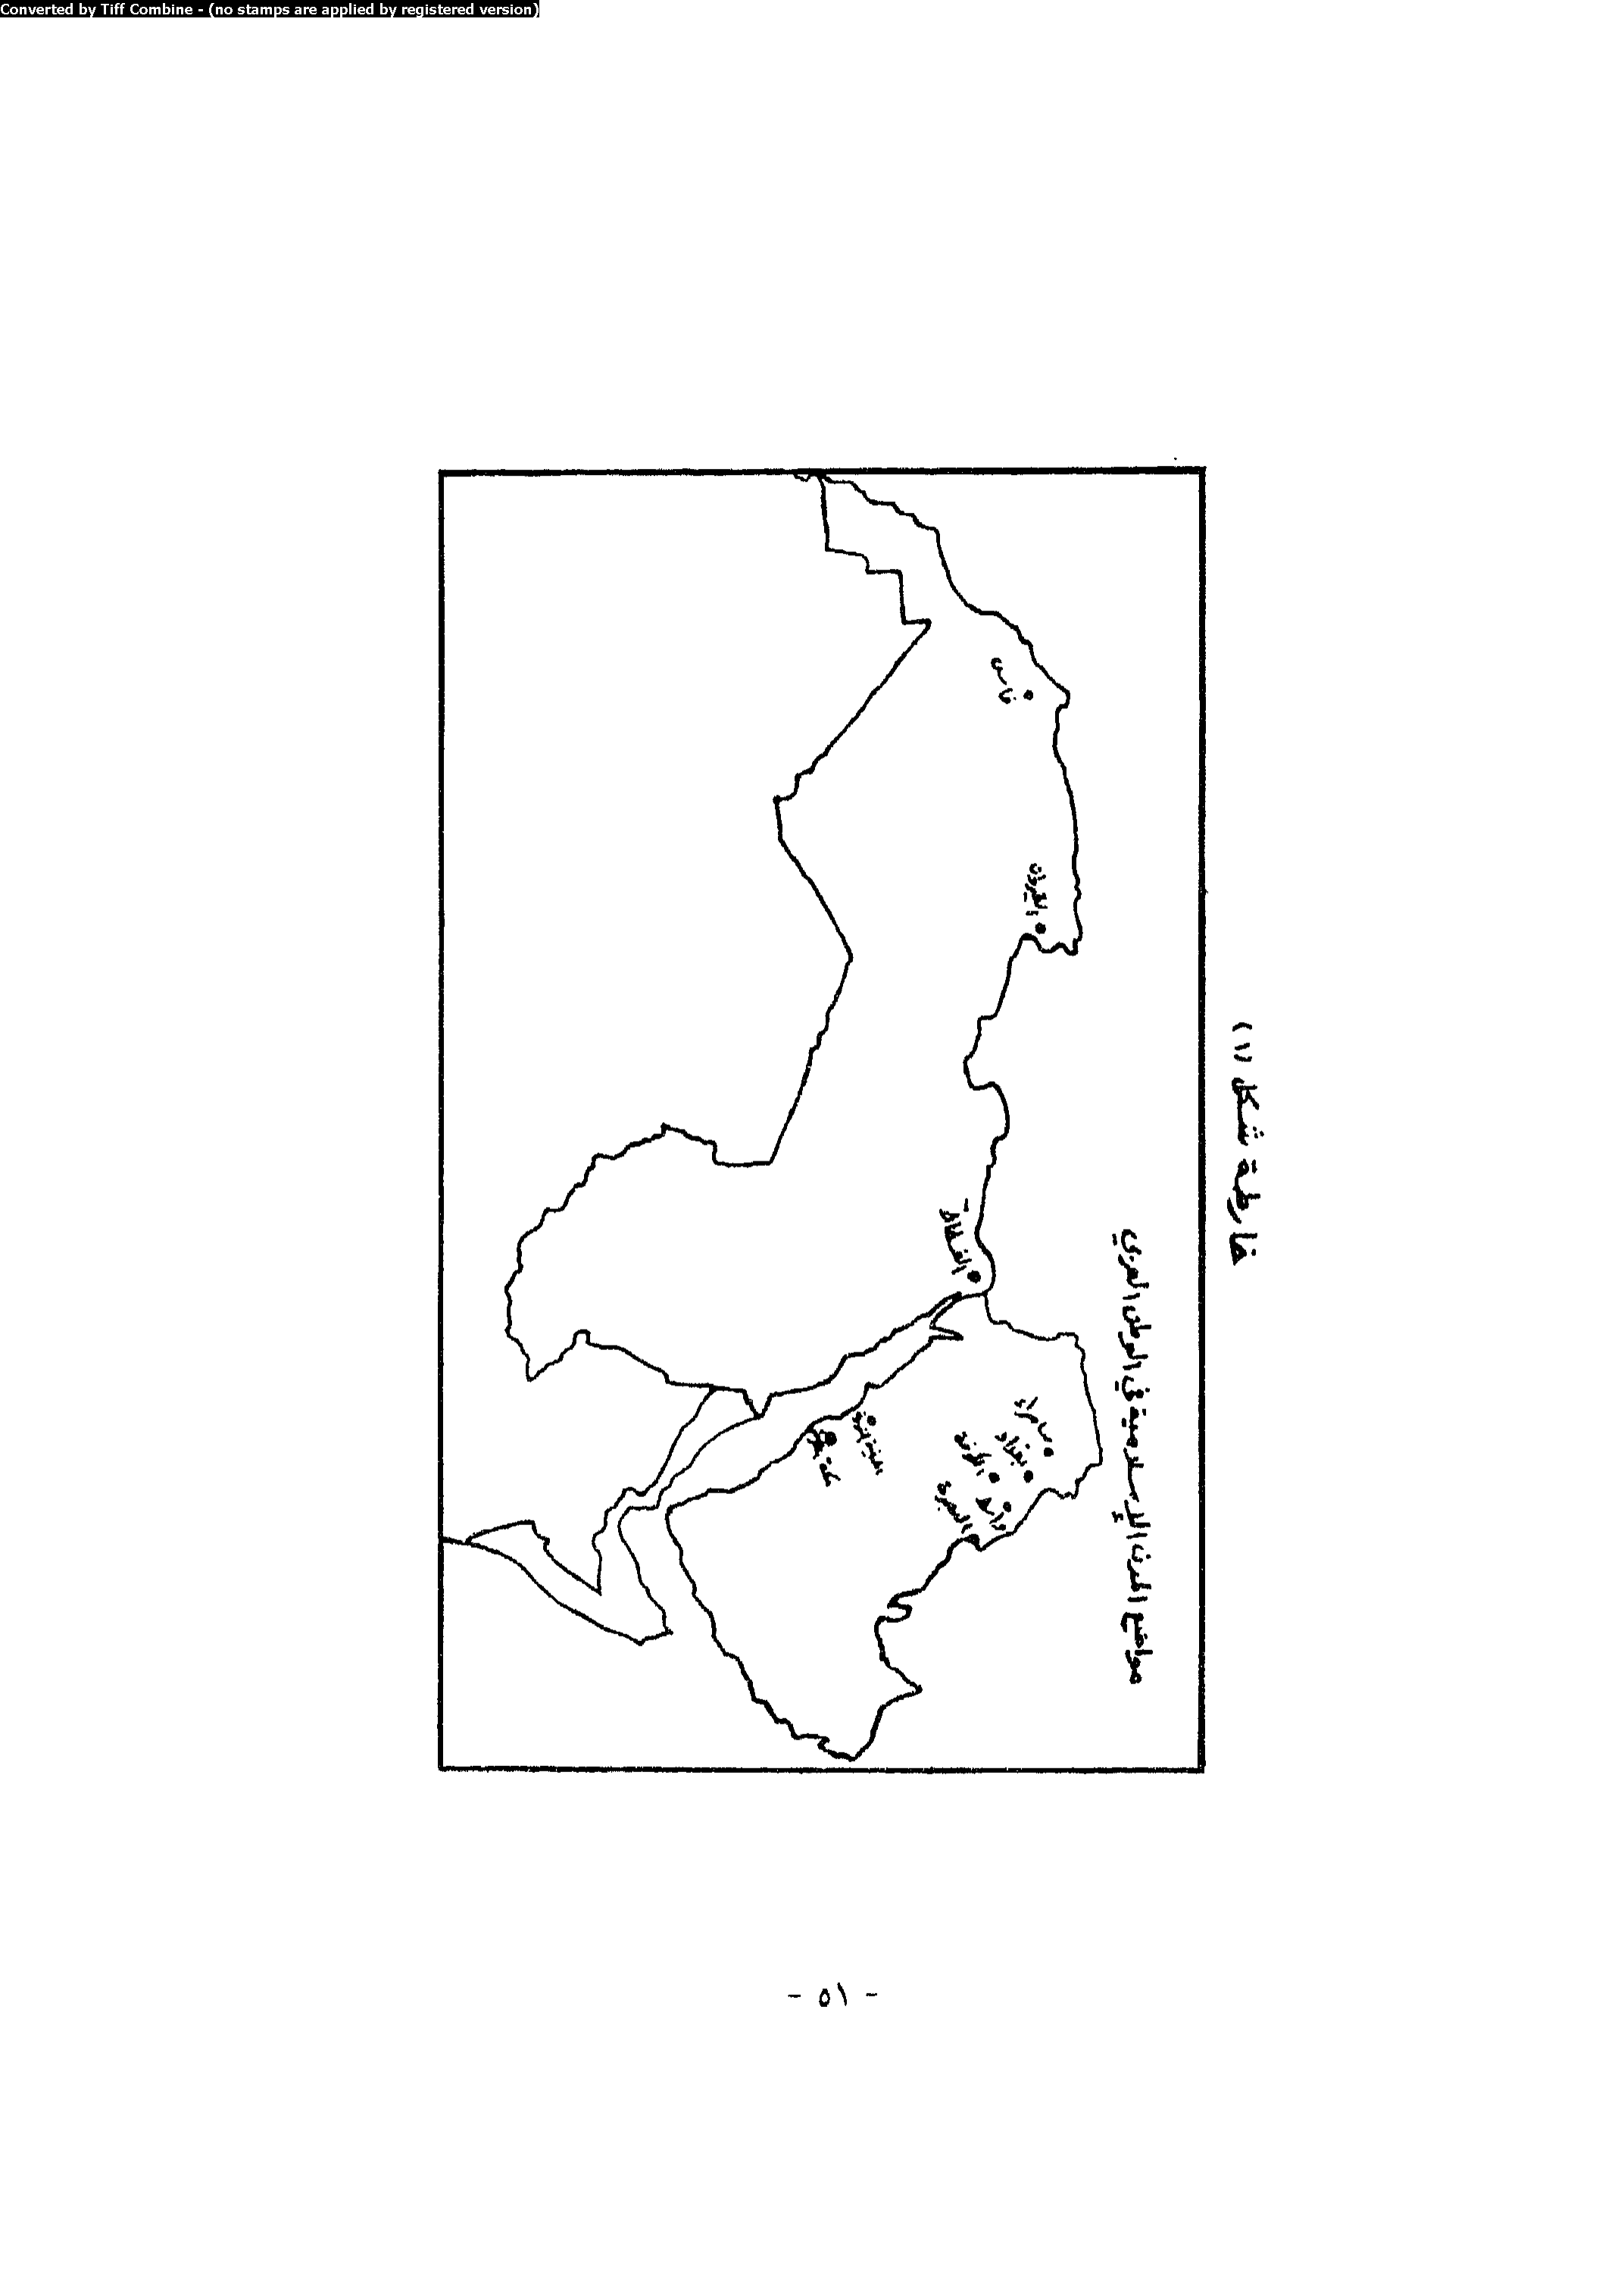 Converted by Tiff Combine - (no stamps are applied by registered version)
خارطة شكل (١)
مواضع المدن الإسلامية في الوطن العربي
فاس
القيروان
الفسطاط
سامراء
بغداد
الكوفة
واسط
البصرة
المدينة المنورة
مكة
- ٥١ -